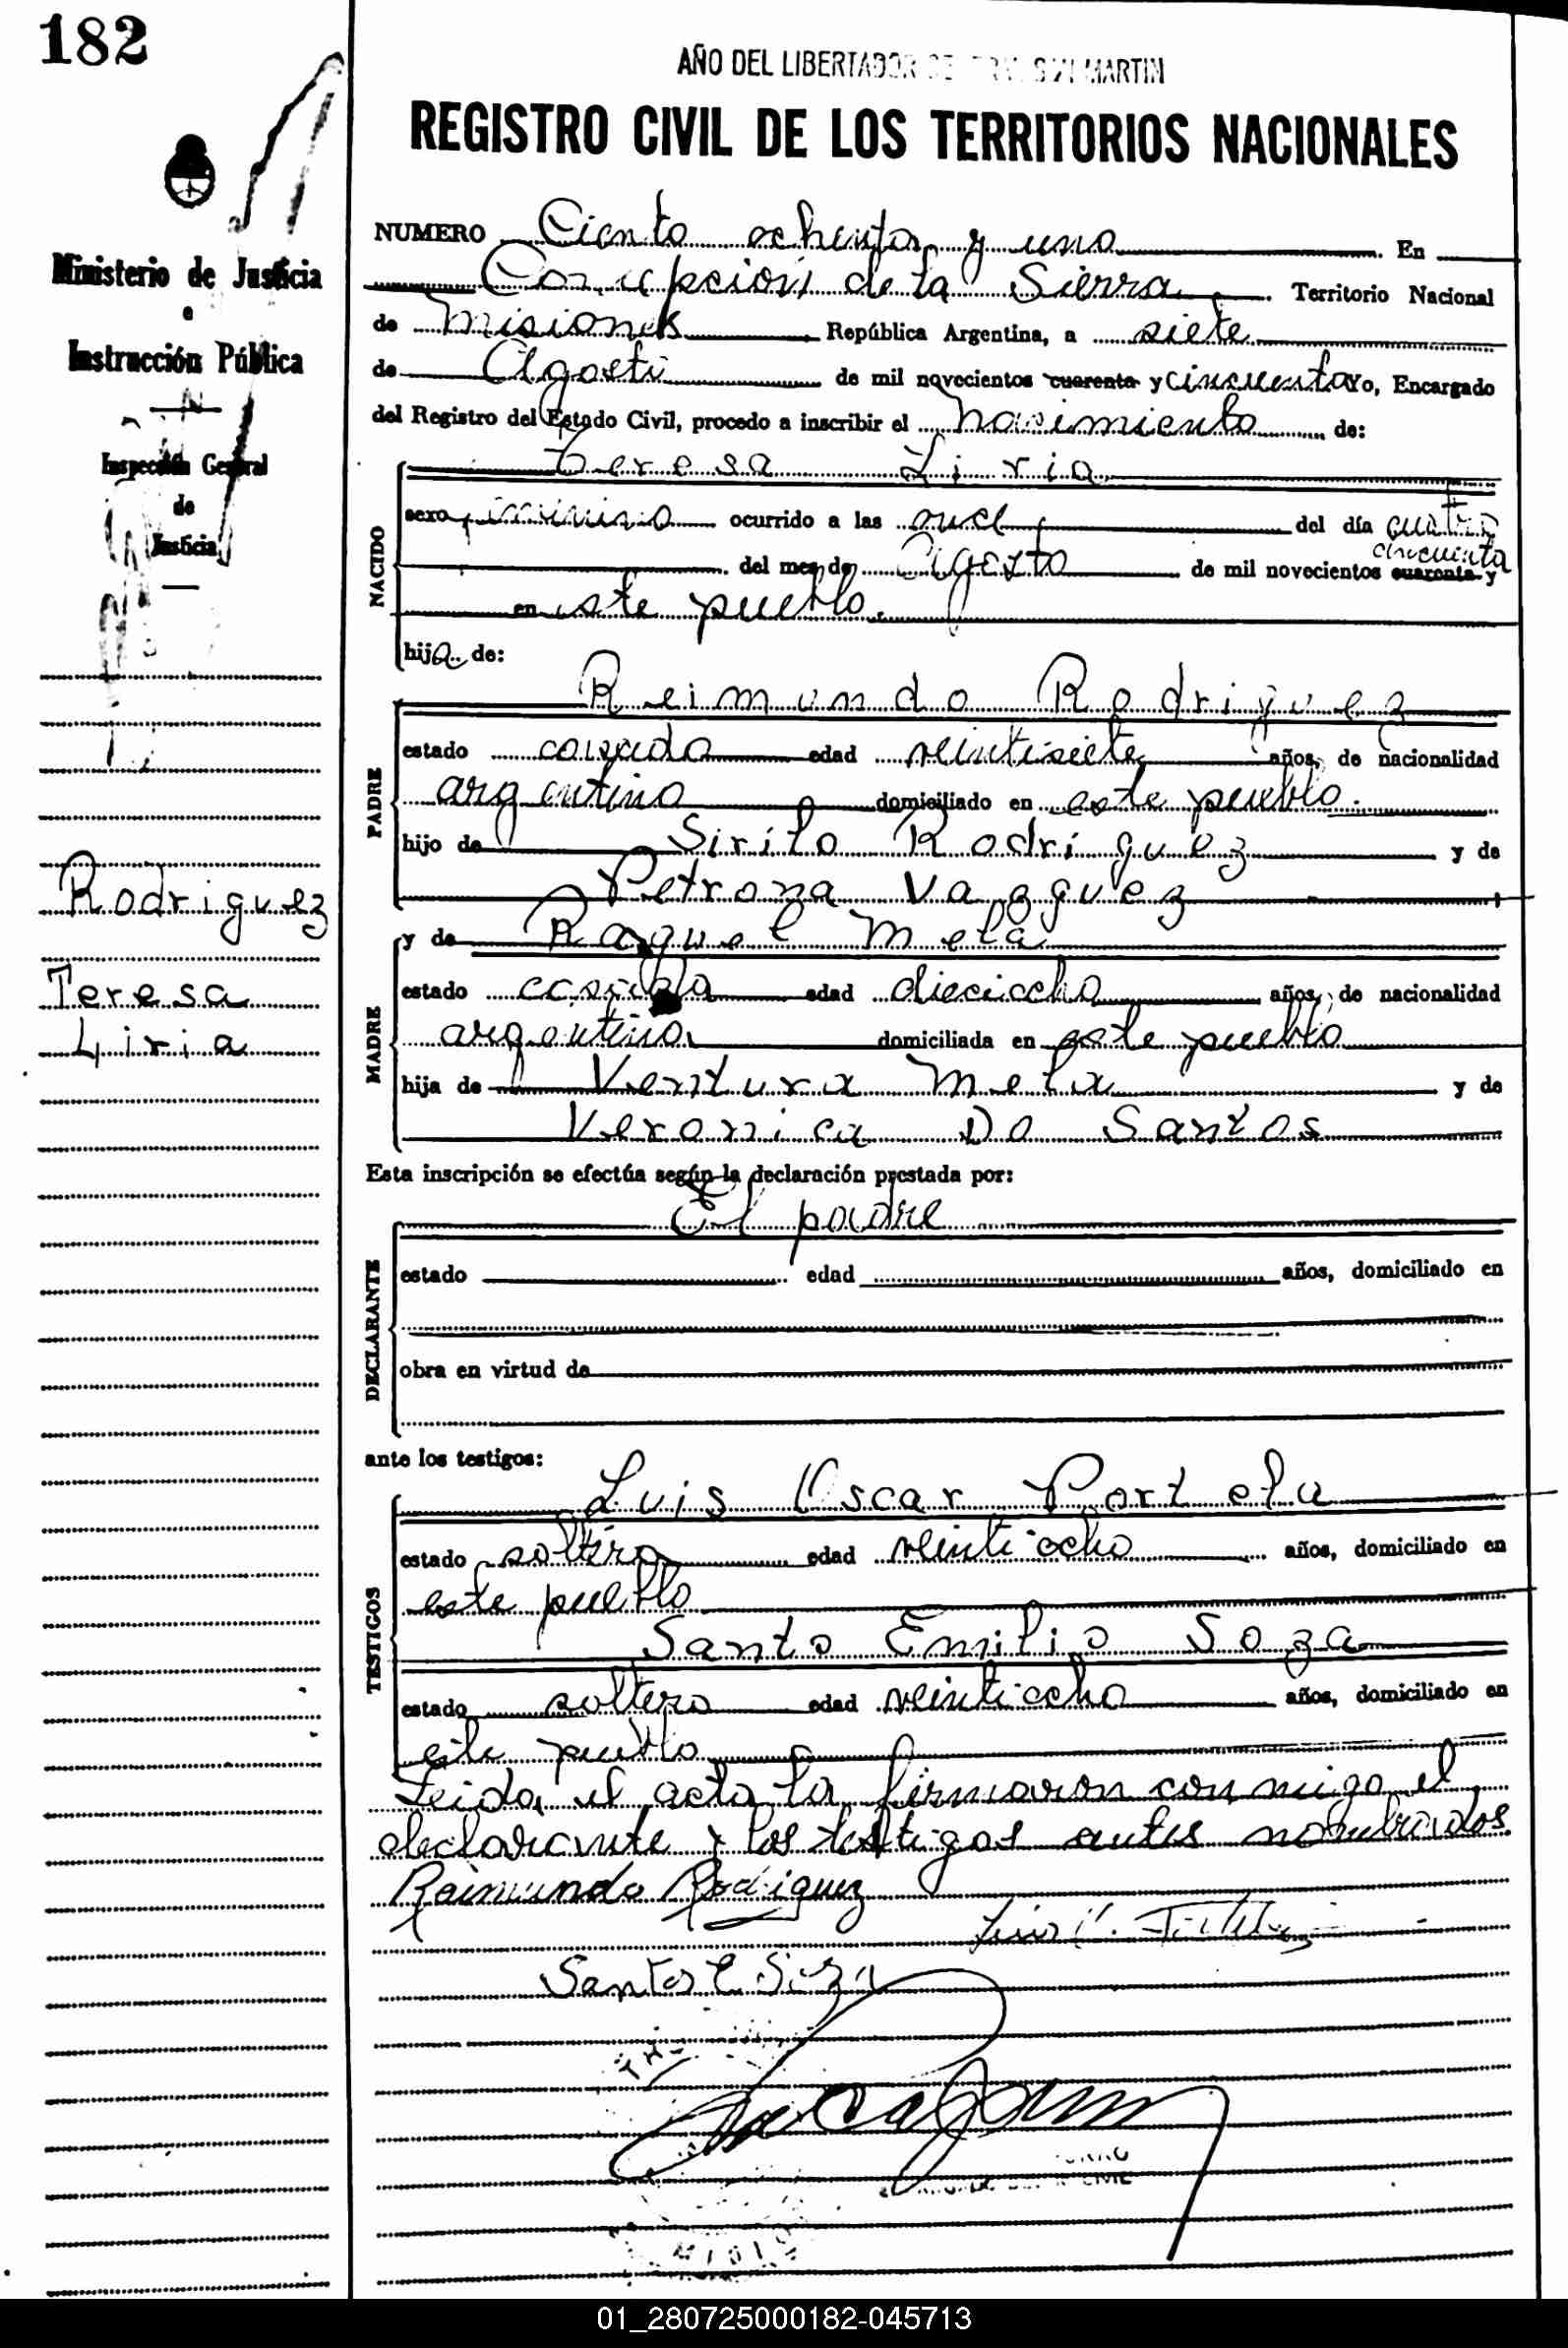 182
AÑO DEL LIBERTADOR SAN MARTIN
REGISTRO CIVIL DE LOS TERRITORIOS NACIONALES
Ministerio de Justicia
e
Instrucción Pública
Inspección General
de
Justicia
Rodriguez
Teresa
Liria
NUMERO Ciento ochenta y uno. En
Concepción de la Sierra. Territorio Nacional
de Misiones República Argentina, a siete
de Agosto de mil novecientos cuarenta y cincuenta Yo, Encargado
del Registro del Estado Civil, procedo a inscribir el nacimiento de:
NACIDO
Teresa Liria
sexo femenino ocurrido a las once del día cuatro
cincuenta
del mes de Agosto de mil novecientos cuarenta y
en este pueblo.
hija de:
PADRE
Reimundo Rodriguez
estado casado edad veintisiete años, de nacionalidad
argentino domiciliado en este pueblo.
hijo de Sirilo Rodriguez y de
Petrona Vazquez
MADRE
y de Raquel Mela
estado casada edad dieciocho años, de nacionalidad
argentina domiciliada en este pueblo
hija de Ventura Mela y de
Veronica Do Santos
Esta inscripción se efectúa según la declaración prestada por:
DECLARANTE
El padre
estado edad años, domiciliado en
obra en virtud de
ante los testigos:
TESTIGOS
Luis Oscar Portela
estado soltero edad veintiocho años, domiciliado en
este pueblo
Santo Emilio Soza
estado soltero edad veintiocho años, domiciliado en
este pueblo
Leida el acta la firmaron conmigo el
declarante y los testigos antes nombrados
Raimundo Rodriguez
Luis O.
Santos E. Soza
CIVIL
01_280725000182-045713